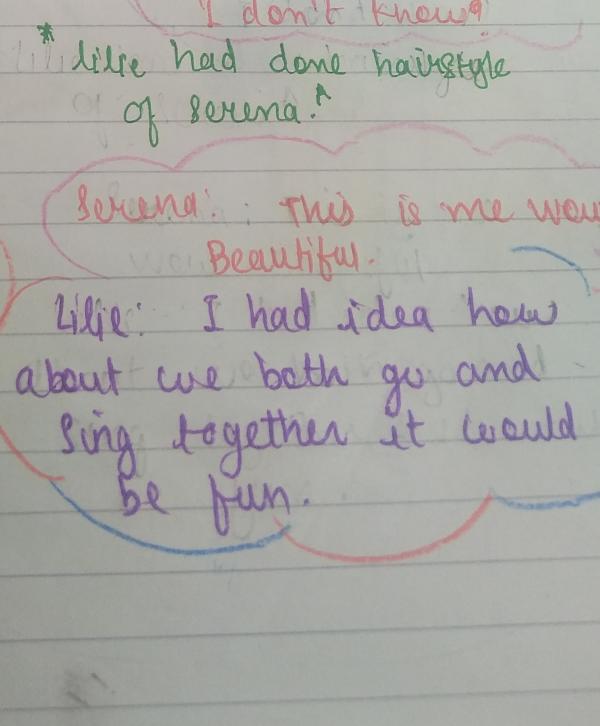 I don't know?
* Lilie had done hairstyle
of Serena.*
Serena: This is me wou
Beautiful.
Lilie: I had idea how
about we both go and
Sing together it would
be fun.